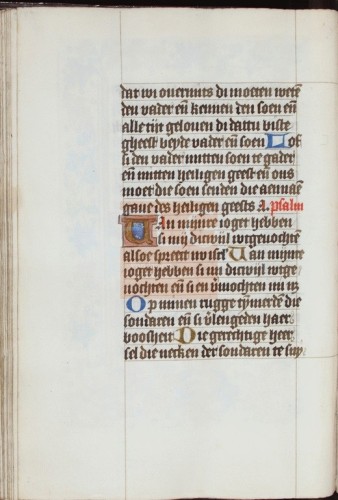 dat wi overmits di moeten weten
den vader en̄ kennen den soen en̄
alle tijt geloven di dattu biste
gheest beyde vader en̄ soen Lof
si den vader mitten soen te gader
en̄ mitten heiligen geest en̄ ons
moet die soen senden die aenna
gave des heiligen geests A. psalm
Van mijnre ioget hebben
si mij dicwijl wtgevochten
alsoe spreect nu isrl Van mijnre
ioget hebben si mi dicwijl wtge
vochten en̄ si en vmochten mi niet
Op minen rugge tymmerden die
sondaren en̄ si vlengeden haer
boosheit Die gerechtige heer
sel die necken der sondaren te sny